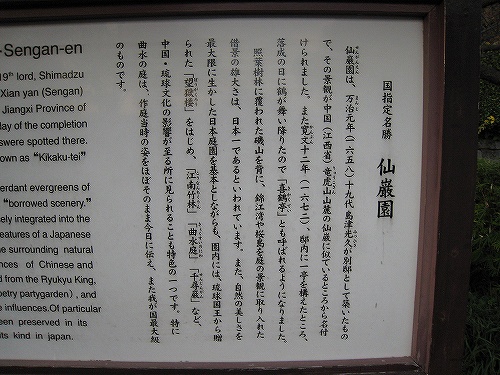 国指定名勝 仙巌園
仙巌園は、万治元年（一六五八）十九代島津光久が別邸として築いたもの
で、その景観が中国（江西省）竜虎山山麓の仙巌に似ているところから名付
けられました。また寛文十二年（一六七二）邸内に一亭を構えたところ、
落成の日に鶴が舞い降りたので「喜鶴亭」とも呼ばれるようになりました。
照葉樹林に覆われた磯山を背に、錦江湾や桜島を庭の景観に取り入れた
借景の雄大さは、日本一であるといわれています。また、自然の美しさを
最大限に生かした日本庭園を基本としながらも、園内には、琉球国王から贈
られた「望嶽楼」をはじめ、「江南竹林」「曲水庭」「千尋巌」など、
中国・琉球文化の影響が至る所に見られることも特色の一つです。特に
曲水の庭は、作庭当時の姿をほぼそのまま今日に伝え、また我が国最大級
のものです。
Sengan-en
19th lord, Shimadzu
Xian yan (Sengan)
Jiangxi Province of
day of the completion
were spotted there.
own as “Kikaku-tei”
erdant evergreens of
“borrowed scenery.”
ely integrated into the
eatures of a Japanese
he surrounding natural
nces of Chinese and
d from the Ryukyu King,
oetry partygarden), and
e influences.Of particular
een preserved in its
its kind in japan.